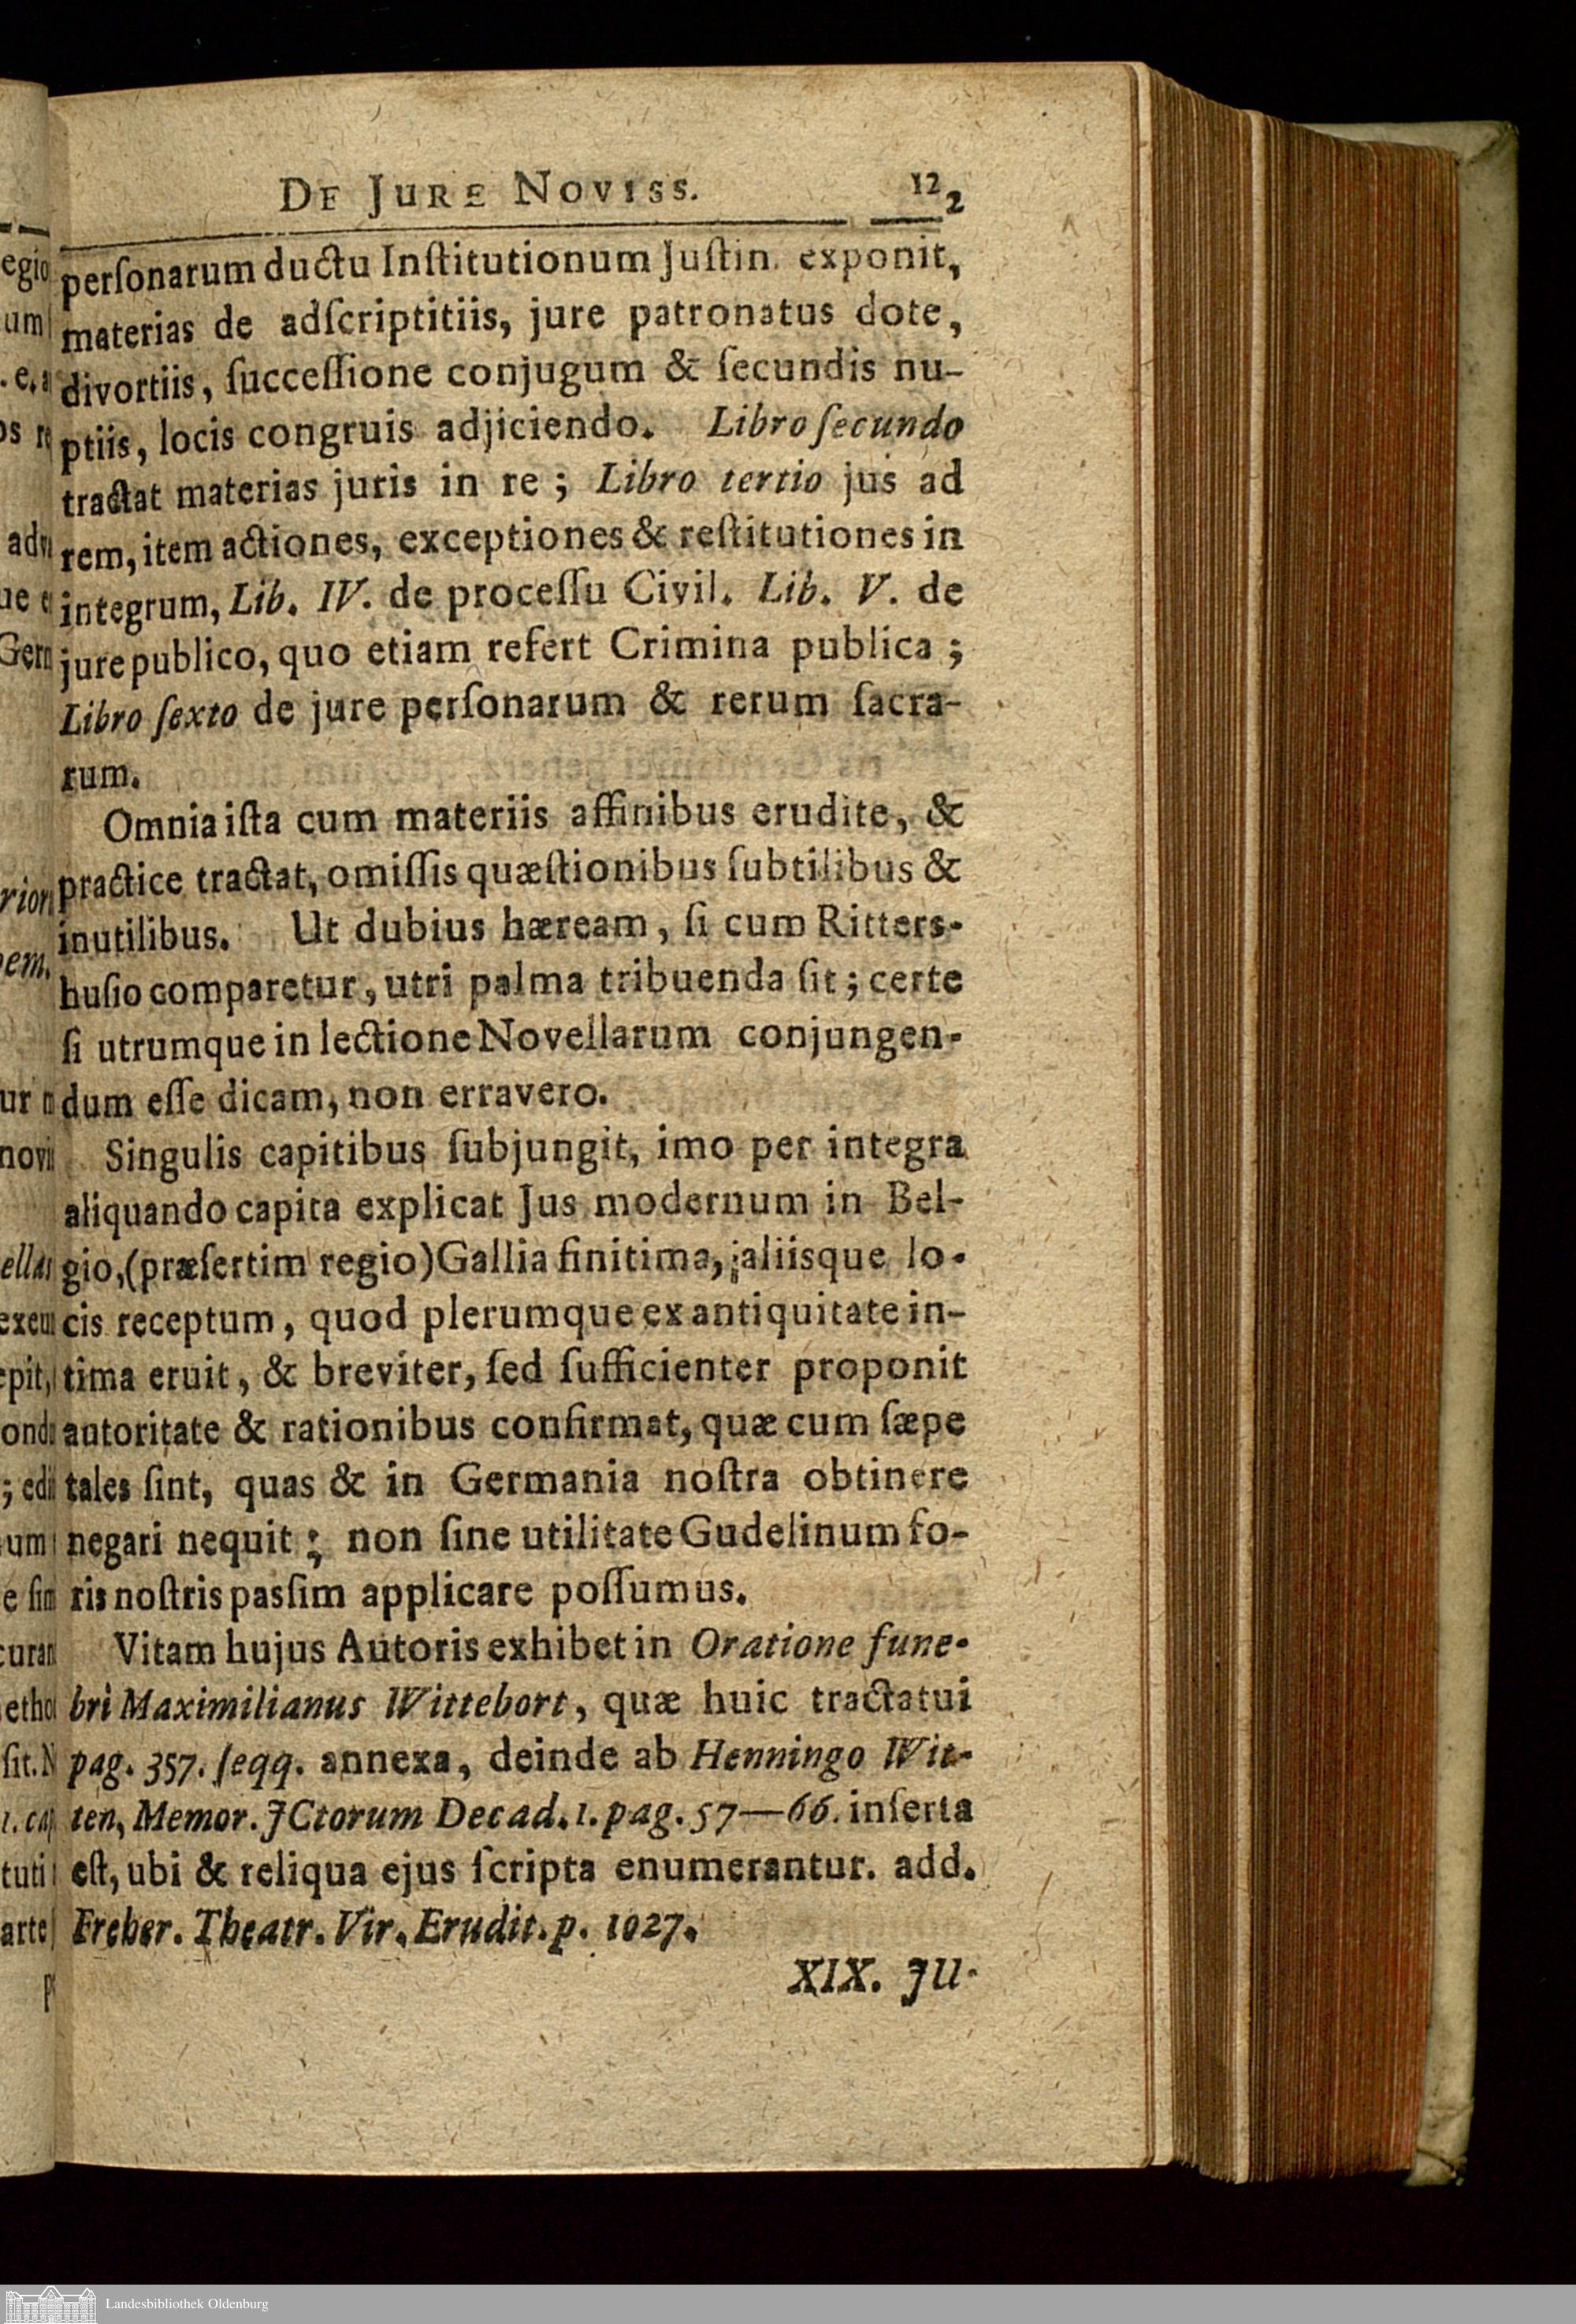 DE JURE NOVISS. 122
perſonarum ductu Inſtitutionum Juſtin. exponit,
materias de adſcriptitiis, jure patronatus dote,
divortiis, ſucceſſione conjugum & ſecundis nu-
ptiis, locis congruis adjiciendo. Libro ſecundo
tractat materias juris in re; Libro tertio jus ad
rem, item actiones, exceptiones & reſtitutiones in
integrum, Lib. IV. de proceſſu Civil. Lib. V. de
jure publico, quo etiam refert Crimina publica;
Libro ſexto de jure perſonarum & rerum ſacra-
rum.
Omnia iſta cum materiis affinibus erudite, &
practice tractat, omiſſis quæſtionibus ſubtilibus &
inutilibus. Ut dubius hæream, ſi cum Ritters-
huſio comparetur, utri palma tribuenda ſit; certe
ſi utrumque in lectione Novellarum conjungen-
dum eſſe dicam, non erravero.
Singulis capitibus ſubjungit, imo per integra
aliquando capita explicat Jus modernum in Bel-
gio, (præſertim regio) Gallia finitima, aliisque lo-
cis receptum, quod plerumque ex antiquitate in-
tima eruit, & breviter, ſed ſufficienter proponit
autoritate & rationibus confirmat, quæ cum ſæpe
tales ſint, quas & in Germania noſtra obtinere
negari nequit; non ſine utilitate Gudelinum fo-
ris noſtris paſsim applicare poſſumus.
Vitam hujus Autoris exhibet in Oratione fune-
bri Maximilianus Wittebort, quæ huic tractatui
pag. 357. ſeqq. annexa, deinde ab Henningo Wit-
ten, Memor. JCtorum Decad. 1. pag. 57—66. inſerta
eſt, ubi & reliqua ejus ſcripta enumerantur. add.
Freher. Theatr. Vir. Erudit. p. 1027.
XIX. JU-
Landesbibliothek Oldenburg